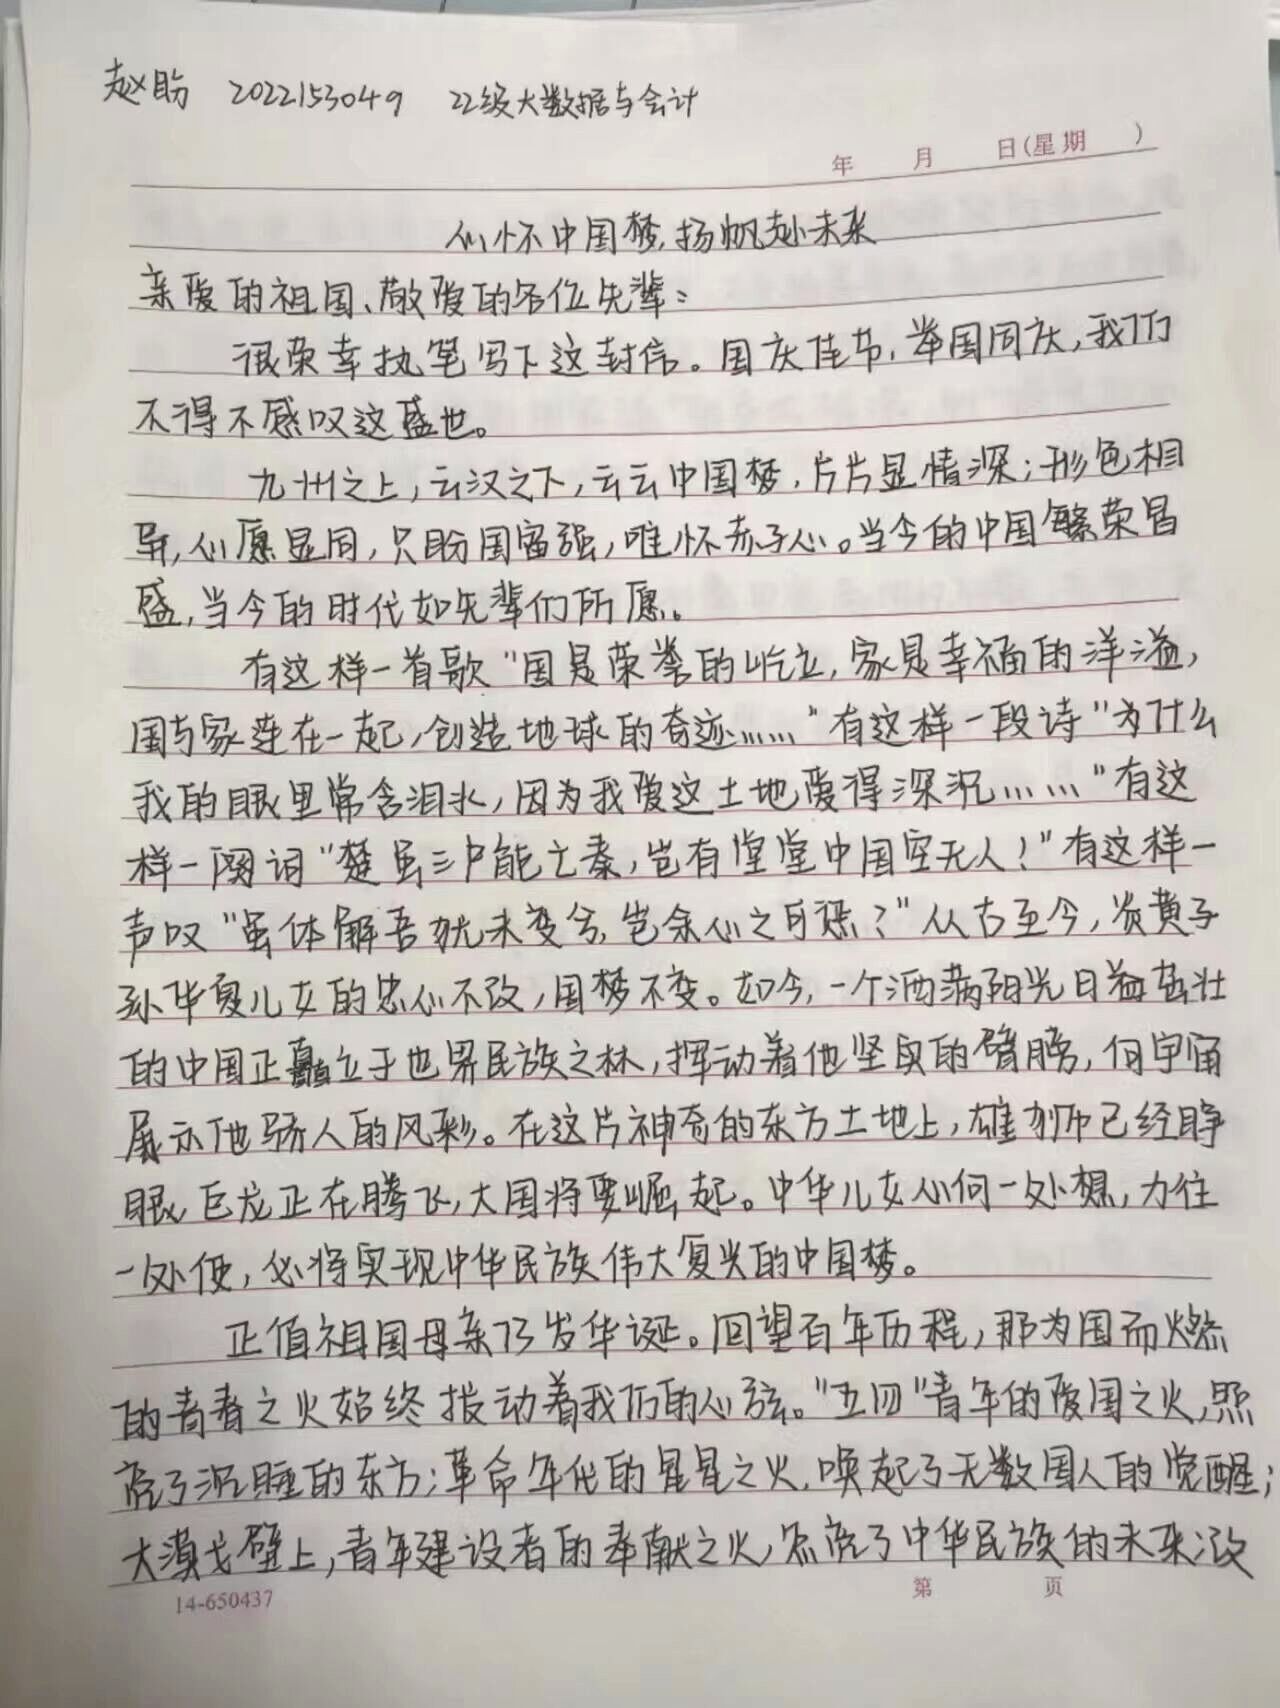 赵盼 2022153049 22级大数据与会计
年 月 日(星期 )
心怀中国梦,扬帆赴未来
亲爱的祖国、敬爱的各位先辈:
很荣幸执笔写下这封信。国庆佳节,举国同庆,我们
不得不感叹这盛世。
九州之上,云汉之下,云云中国梦,片片显情深;形色相
异,心愿显同,只盼国富强,唯怀赤子心。当今的中国繁荣昌
盛,当今的时代如先辈们所愿。
有这样一首歌"国是荣誉的屹立,家是幸福的洋溢,
国与家连在一起,创造地球的奇迹……"有这样一段诗"为什么
我的眼里常含泪水,因为我爱这土地爱得深沉……"有这
样一阕词"楚虽三户能亡秦,岂有堂堂中国空无人!"有这样一
声叹"虽体解吾犹未变兮,岂余心之可惩?"从古至今,炎黄子
孙华夏儿女的忠心不改,国梦不变。如今,一个洒满阳光日益茁壮
的中国正矗立于世界民族之林,挥动着他坚实的臂膀,向宇宙
展示他骄人的风彩。在这片神奇的东方土地上,雄狮已经睁
眼,巨龙正在腾飞,大国将要崛起。中华儿女心向一处想,力往
一处使,必将实现中华民族伟大复兴的中国梦。
正值祖国母亲73岁华诞。回望百年历程,那为国而燃
的青春之火始终拨动着我们的心弦。"五四"青年的爱国之火,照
亮了沉睡的东方;革命年代的星星之火,唤起了无数国人的觉醒;
大漠戈壁上,青年建设者的奉献之火,点亮了中华民族的未来;改
14-650437 第 页